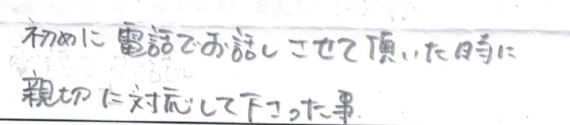 初めに電話でお話しさせて頂いた時に
親切に対応して下さった事